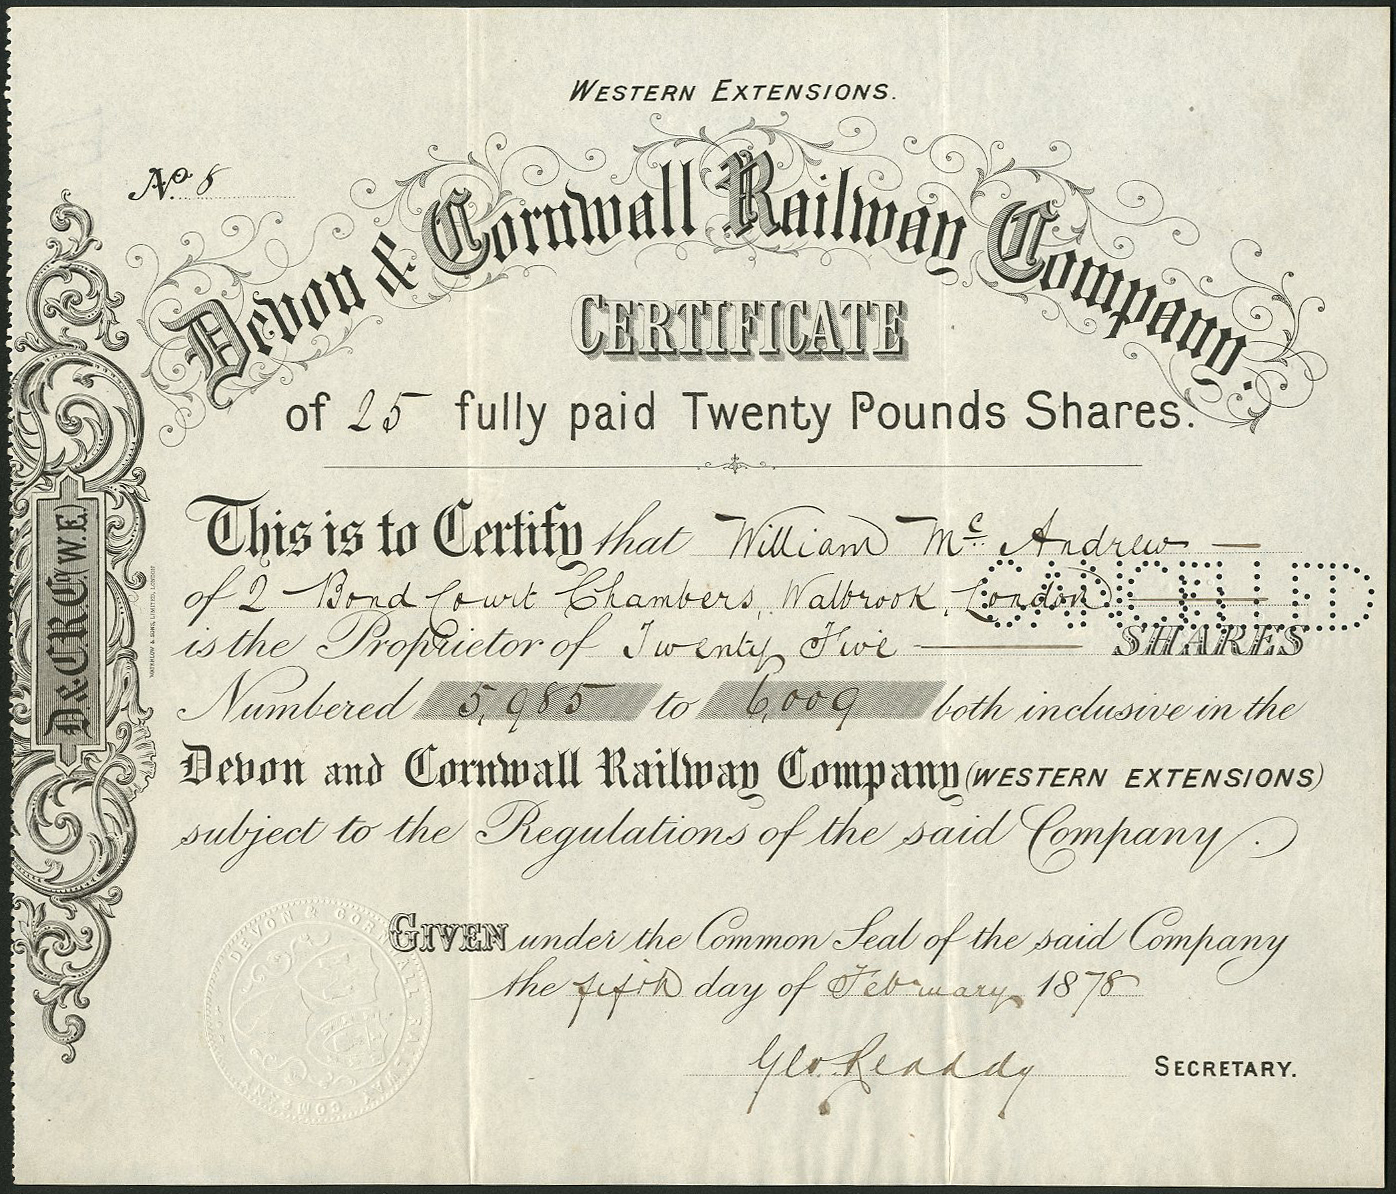 WESTERN EXTENSIONS.
No. 8
Devon & Cornwall Railway Company.
CERTIFICATE
of 25 fully paid Twenty Pounds Shares.
This is to Certify that William Mc. Andrew
of 2 Bond Court Chambers, Walbrook, London
CANCELLED
is the Proprietor of Twenty Five SHARES
Numbered 5,985 to 6,009 both inclusive in the
Devon and Cornwall Railway Company (WESTERN EXTENSIONS)
subject to the Regulations of the said Company.
GIVEN under the Common Seal of the said Company
the fifth day of February 1878
Geo. Readdy SECRETARY.
D. & C. R. Co. (W.E.)
WATERLOW & SONS, LIMITED, LONDON
DEVON & CORNWALL RAILWAY COMPANY